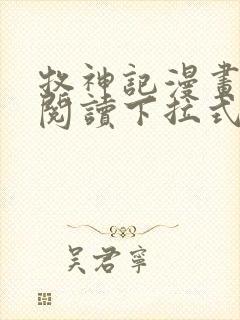 牧神記漫畫
閱讀下拉式
吴君寧